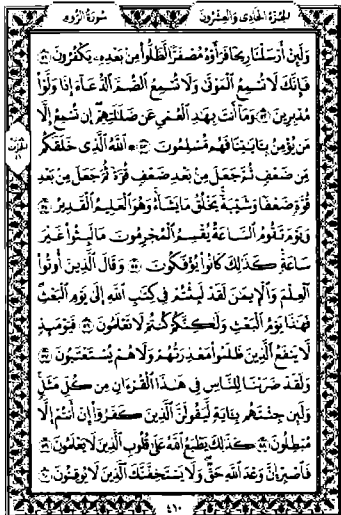 الجزء الحادى والعشرون سورة الروم
وَلَئِنْ أَرْسَلْنَا رِيحًا فَرَأَوْهُ مُصْفَرًّا لَّظَلُّوا۟ مِنۢ بَعْدِهِۦ يَكْفُرُونَ ٥١
فَإِنَّكَ لَا تُسْمِعُ ٱلْمَوْتَىٰ وَلَا تُسْمِعُ ٱلصُّمَّ ٱلدُّعَآءَ إِذَا وَلَّوْا۟
مُدْبِرِينَ ٥٢ وَمَآ أَنتَ بِهَٰدِ ٱلْعُمْىِ عَن ضَلَٰلَتِهِمْ إِن تُسْمِعُ إِلَّا
مَن يُؤْمِنُ بِـَٔايَٰتِنَا فَهُم مُّسْلِمُونَ ٥٣ ۞ ٱللَّهُ ٱلَّذِى خَلَقَكُم
مِّن ضَعْفٍ ثُمَّ جَعَلَ مِنۢ بَعْدِ ضَعْفٍ قُوَّةً ثُمَّ جَعَلَ مِنۢ بَعْدِ
قُوَّةٍ ضَعْفًا وَشَيْبَةً يَخْلُقُ مَا يَشَآءُ وَهُوَ ٱلْعَلِيمُ ٱلْقَدِيرُ ٥٤
وَيَوْمَ تَقُومُ ٱلسَّاعَةُ يُقْسِمُ ٱلْمُجْرِمُونَ مَا لَبِثُوا۟ غَيْرَ
سَاعَةٍ كَذَٰلِكَ كَانُوا۟ يُؤْفَكُونَ ٥٥ وَقَالَ ٱلَّذِينَ أُوتُوا۟
ٱلْعِلْمَ وَٱلْإِيمَٰنَ لَقَدْ لَبِثْتُمْ فِى كِتَٰبِ ٱللَّهِ إِلَىٰ يَوْمِ ٱلْبَعْثِ
فَهَٰذَا يَوْمُ ٱلْبَعْثِ وَلَٰكِنَّكُمْ كُنتُمْ لَا تَعْلَمُونَ ٥٦ فَيَوْمَئِذٍ
لَّا يَنفَعُ ٱلَّذِينَ ظَلَمُوا۟ مَعْذِرَتُهُمْ وَلَا هُمْ يُسْتَعْتَبُونَ ٥٧
وَلَقَدْ ضَرَبْنَا لِلنَّاسِ فِى هَٰذَا ٱلْقُرْءَانِ مِن كُلِّ مَثَلٍ
وَلَئِن جِئْتَهُم بِـَٔايَةٍ لَّيَقُولَنَّ ٱلَّذِينَ كَفَرُوٓا۟ إِنْ أَنتُمْ إِلَّا
مُبْطِلُونَ ٥٨ كَذَٰلِكَ يَطْبَعُ ٱللَّهُ عَلَىٰ قُلُوبِ ٱلَّذِينَ لَا يَعْلَمُونَ ٥٩
فَٱصْبِرْ إِنَّ وَعْدَ ٱللَّهِ حَقٌّ وَلَا يَسْتَخِفَّنَّكَ ٱلَّذِينَ لَا يُوقِنُونَ ٦٠
٤١٠